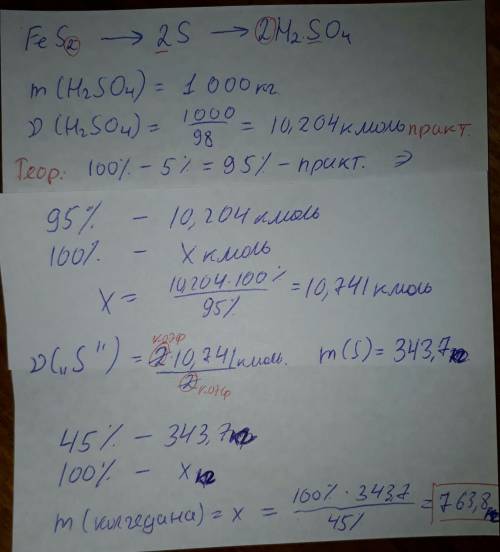 FeS₂ → 2S → 2H₂SO₄
m(H₂SO₄) = 1 000 кг
ν(H₂SO₄) = 1000/98 = 10,204 кмоль практ.
Теор: 100% - 5% = 95% - практ. ⇒
95% - 10,204 кмоль
100% - x кмоль
x = 10,204·100%/95% = 10,741 кмоль
ν(„S") = 2·10,741 кмоль/2 m(S) = 343,7 кг
коэф
коэф
45% - 343,7 кг
100% - x кг
m(колчедана) = x = 100%·343,7/45% = 763,8 кг